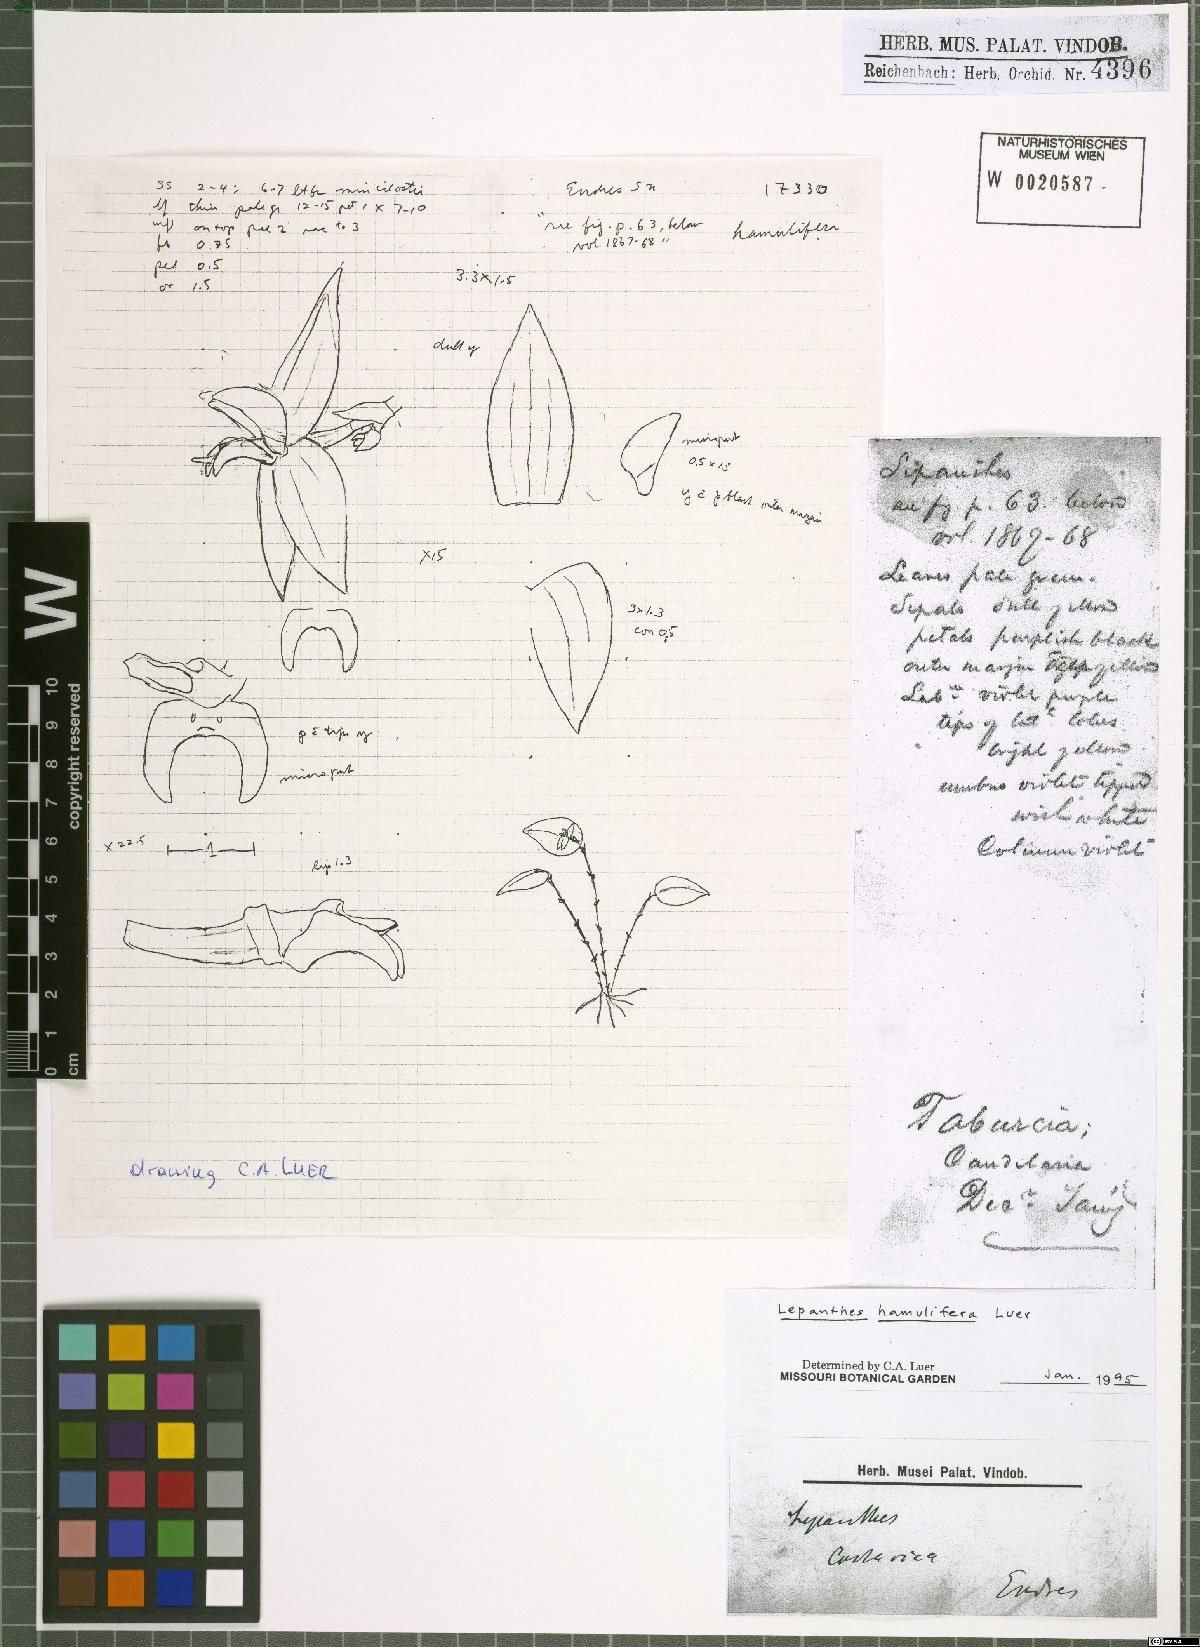 HERB. MUS. PALAT. VINDOB.
Reichenbach: Herb. Orchid. Nr. 4396
NATURHISTORISCHES
MUSEUM WIEN
W 0020587
35 2-4: 6-7
lf thin pale gr 12-15 x 7-10
on top 2 3
0.75
pet 0.5
ov 1.5
Endres sn 17330
"see fig. p. 63, below
vol 1867-68"
hamulifera
3.3x1.5
dull y
0.5x1.5
black outer margin
x15
3x1.3
con 0.5
x 22.5
1
lip 1.3
drawing C.A. LUER
Lepanthes
see fig p. 63 below
vol 1867-68
Leaves pale green.
Sepals dull yellow
petals purplish black
outer margin yellow
Lab.m violet purple
tips of lat.l lobes
bright yellow
violet tipped
with white
Column violet
Taburcia;
Candelaria
Dec.r
Lepanthes hamulifera Luer
Determined by C.A. Luer
MISSOURI BOTANICAL GARDEN
Jan. 1995
Herb. Musei Palat. Vindob.
Lepanthes
Costa rica
Endres
W
0 1 2 3 4 5 6 7 8 9 10
cm
copyright reserved